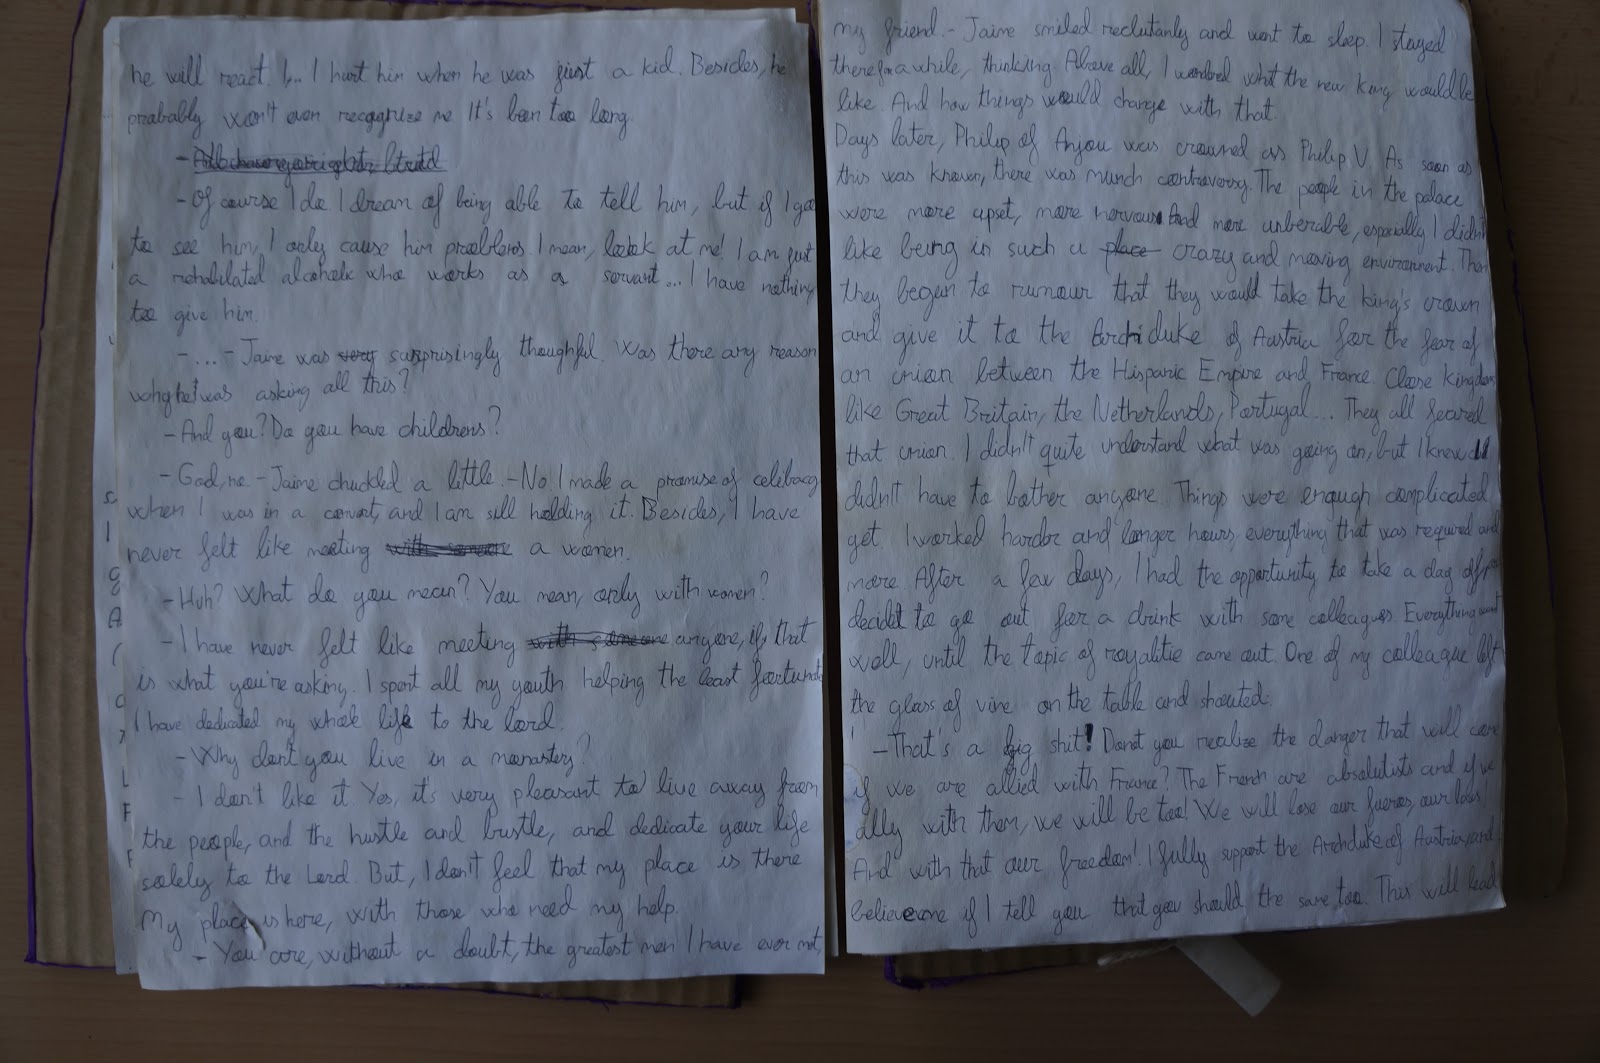 he will react. I... I hurt him when he was just a kid. Besides, he
probably won't even recognize me It's been too long.
-Of course I do. I dream of being able to tell him, but if I go
to see him, I only cause him problems. I mean, look at me! I am just
a rehabilated alcoholic who works as a servant... I have nothing
to give him.
-...- Jaime was very surprisingly thoughful. Was there any reason
why he was asking all this?
-And you? Do you have childrens?
-God, no.- Jaime chuckled a little.-No I made a promise of celibacy
when I was in a convent, and I am sill holding it. Besides, I have
never felt like meeting with someone a women.
-Huh? What do you mean? You mean, only with women?
-I have never felt like meeting with someone anyone, if that
is what you're asking. I spent all my youth helping the least fortunate
I have dedicated my whole life to the lord.
-Why don't you live in a monastery?
- I don't like it. Yes, it's very pleasant to live away from
the people, and the hustle and bustle, and dedicate your life
solely to the Lord. But, I don't feel that my place is there
My place is here, with those who need my help.
- You are, without a doubt, the greatest men I have ever met,
my friend.- Jaime smiled reclutanly and went to sleep. I stayed
there for a while, thinking. Above all, I wondred what the new king would be
like. And how things would change with that.
Days later, Philip of Anjou was crowned as Philip V. As soon as
this was known, there was munch controversy. The people in the palace
were more upset, more nervous and more unberable, especially I didn't
like being in such a place crazy and moving environment. Then
they began to rumour that they would take the king's crown
and give it to the Archiduke of Austria for the fear of
an union between the Hispanic Empire and France. Close kingdoms
like Great Britain, the Netherlands, Portugal... They all feared
that union. I didn't quite understand what was going on, but I knew I
didn't have to bother anyone. Things were enough complicated
yet. I worked harder and longer hours, everything that was required and
more. After a few days, I had the opportunity to take a day off
decidet to go out for a drink with some colleagues. Everything went
well, until the topic of royalitie came out. One of my colleague left
the glass of vine on the table and shouted:
-That's a big shit! Donot you realize the danger that will come
if we are allied with France? The French are absolutists and if we
ally with them, we will be too! We will lose our fueros, our laws!
And with that our freedom! I fully support the Archduke of Austria, and
believe me if I tell you that you should the same too. This will lead
S
I
G
A
L
F